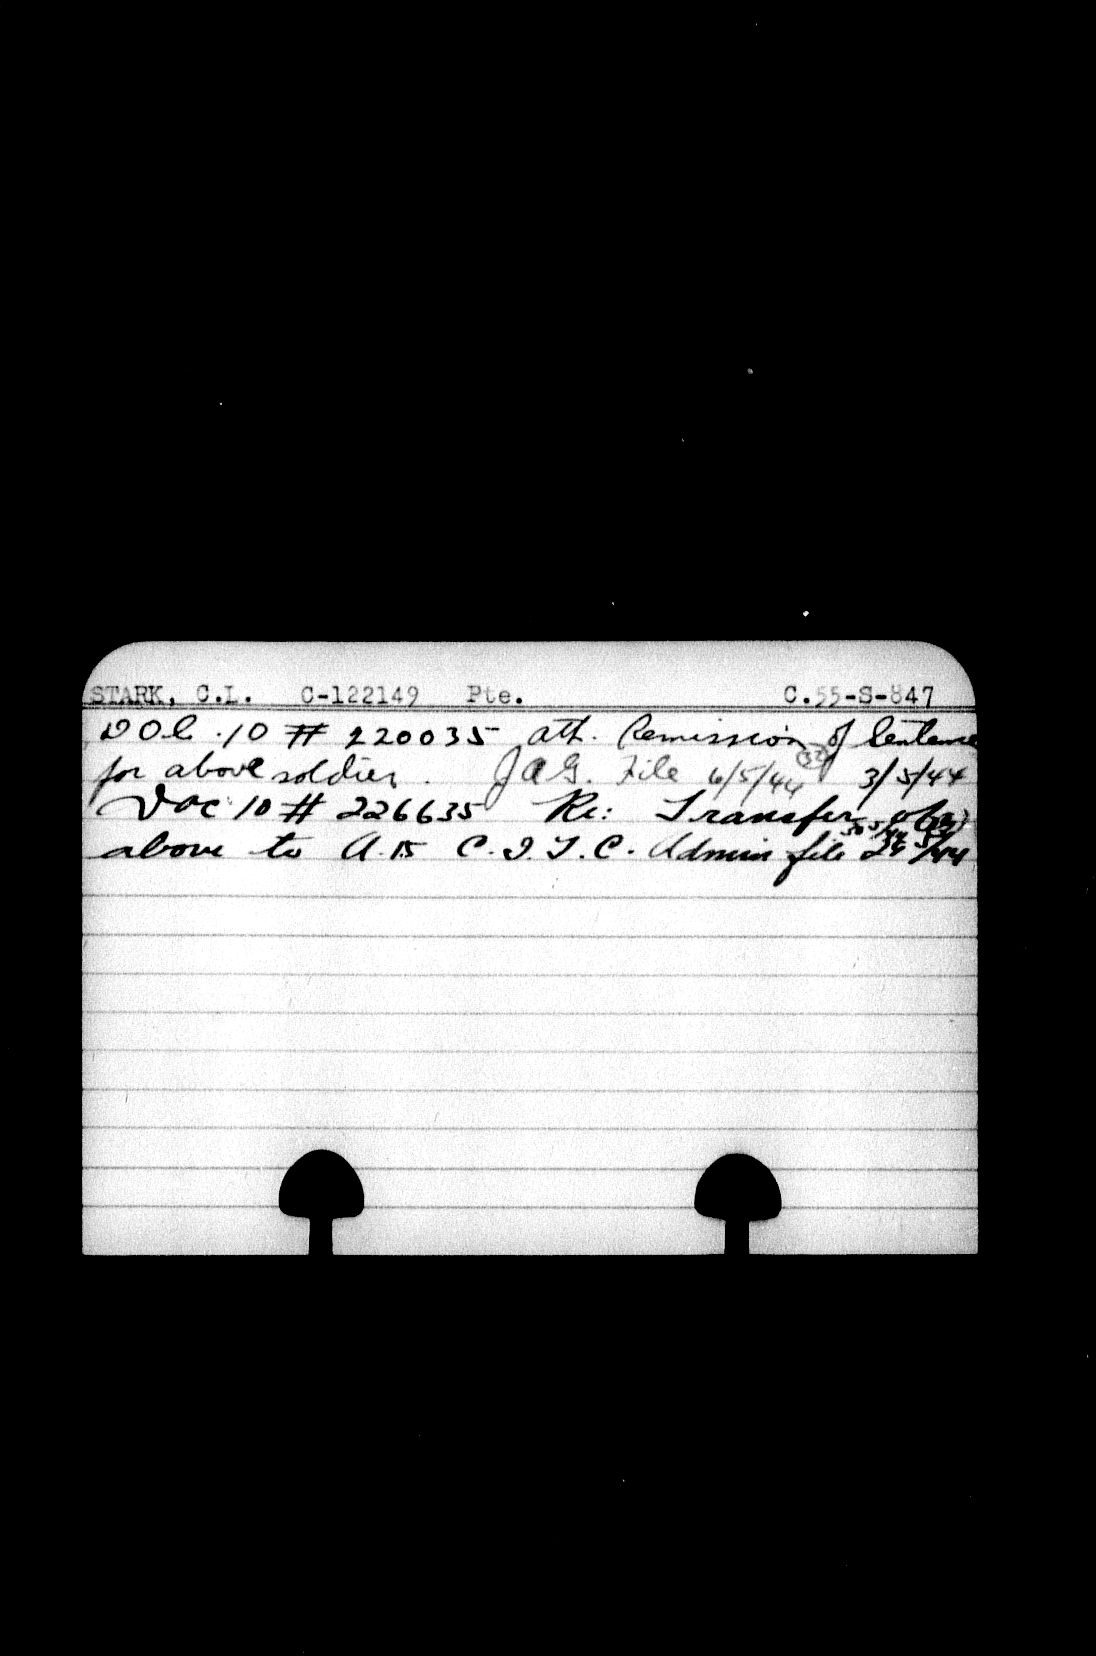 STARK, C.L. C-122149 Pte. C.55-S-847
DOC .10 # 220035 ath. Remission of Sentence
for above soldier. JAG. File 6/5/44 3/5/44
DOC 10 # 226635 Re: Transfer of
above to A.15 C.I.T.C. Admin file 24/5/44